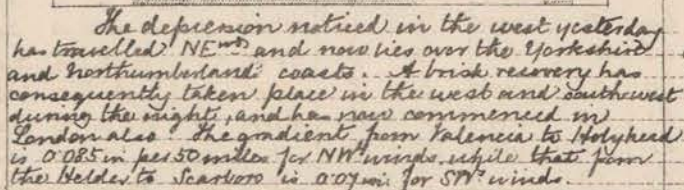 The depression noticed in the west yesterday
has travelled NEwds and now lies over the Yorkshire
and Northumberland coasts. A brisk recovery has
consequently taken place in the west and southwest
during the night, and has now commenced in
London also. The gradient from Valencia to Holyhead
is 0.085 in per 50 miles for NWly winds, while that from
the Helder to Scarboro is 0.07 in. for SWly winds.